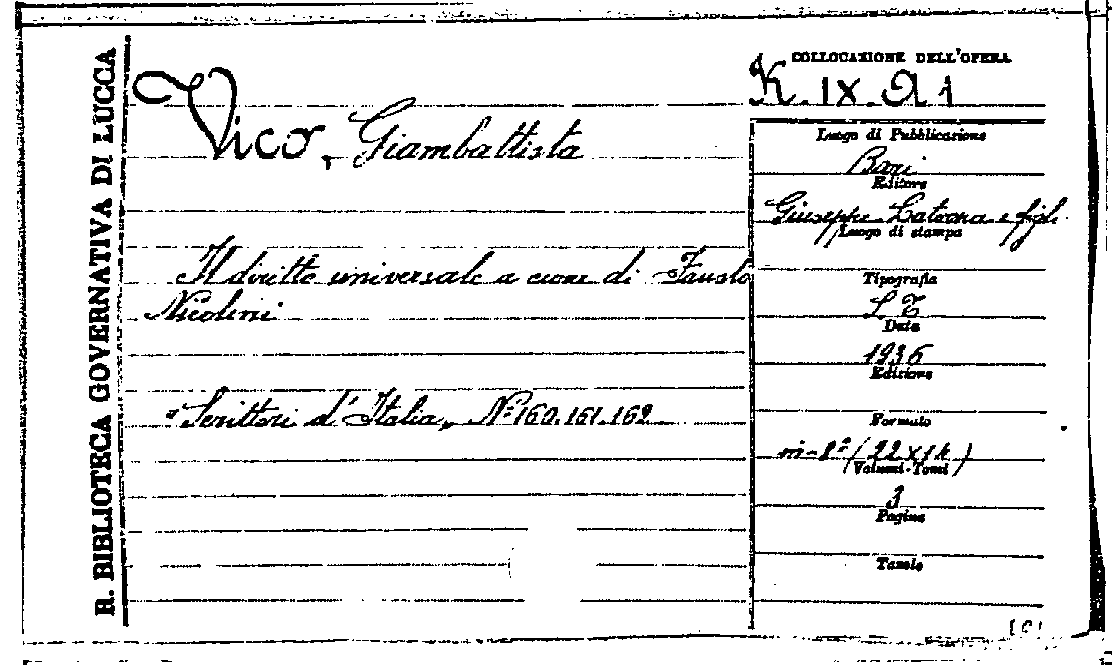 R. BIBLIOTECA GOVERNATIVA DI LUCCA
Vico, Giambattista
Il diritto universale a cura di Fausto
Nicolini
"Scrittori d'Italia, Nº 160.161.162
COLLOCAZIONE DELL'OPERA
K. IX. A 1
Luogo di Pubblicazione
Bari
Editore
Giuseppe Laterza e figli
Luogo di stampa
Tipografia
L T
Data
1936
Edizione
Formato
in-8º (22 x 14)
Volumi-Tomi
3
Pagine
Tavole